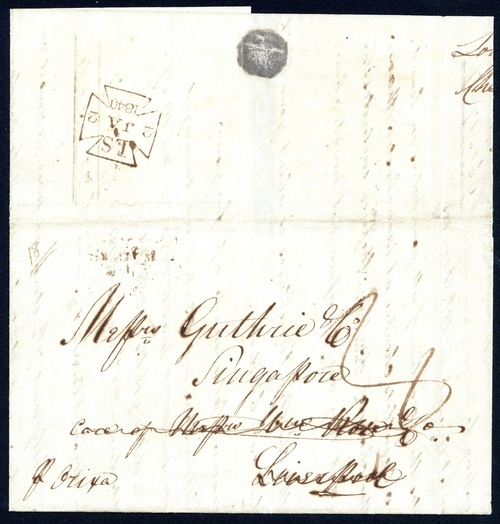 Lo
Che
LS
2 JA 2
1840
18/
Messrs Guthrie & Co
Singapore
care of Messrs Wm & Co
Liverpool
p Orixa